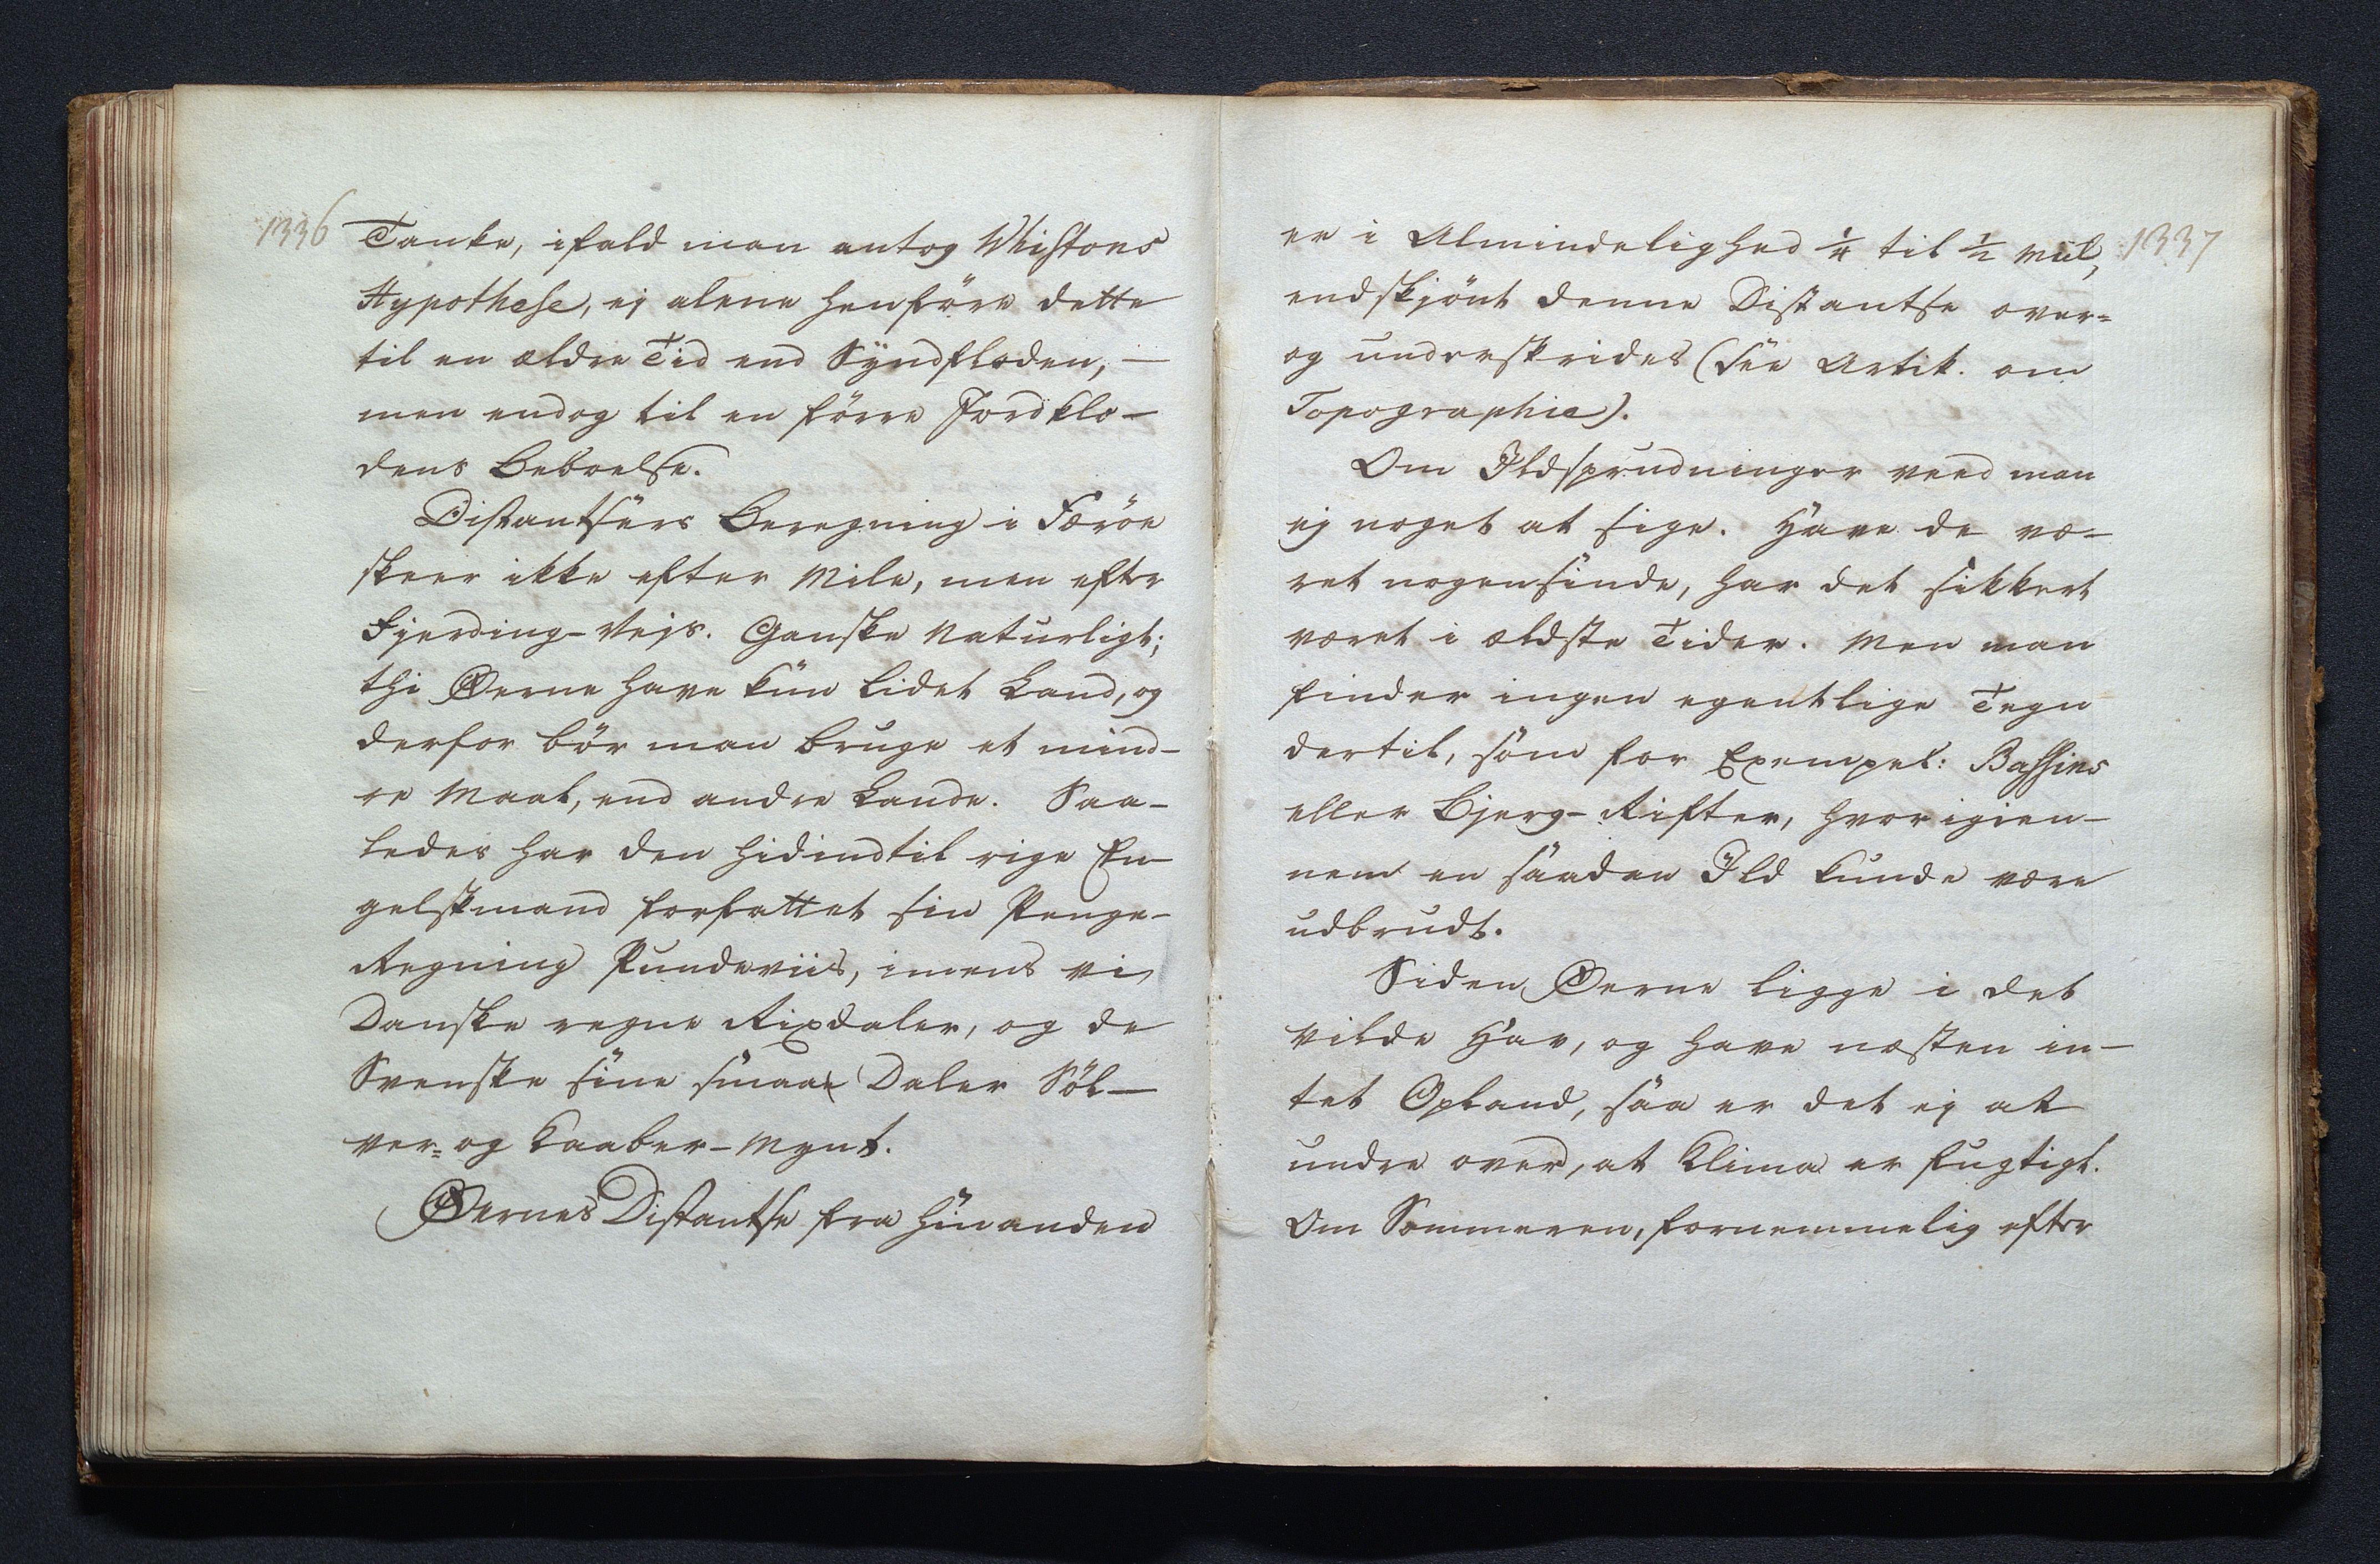 1336
Tanke, ifald man antog Whistons
Hypothese, ej alene henföre dette
til en ældre Tid end Syndfloden, —
men endog til en förre Jordklo-
dens Beboelse.
Distantsers Beregning i Færöe
skeer ikke efter Mile, men efter
Fjerding-Vejs. Ganske Naturligt;
thi Øerne have kun lidet Land, og
derfor bör man bruge et mind-
re Maal, end andre Lande. Saa-
ledes har den hidindtil rige En-
gelskmand forfattet sin Penge-
Regning Pundeviis, imens vi
Danske regne Rixdaler, og de
Svenske sine smaae Daler Söl-
ver- og Kaaber-Mynt.
Øernes Distantse fra hinanden
1337
er i Almindelighed 1/4 til 1/2 Miil,
endskjönt denne Distantse over-
og underskrides (see Artik. om
Topographie).
Om Ildsprudninger veed man
ej noget at sige. Have de væ-
ret nogensinde, har det sikkert
været i ældste Tider. Men man
finder ingen egentlige Tegn
dertil, som for Exempel: Bassins
eller Bjerg-Rifter, hvorigien-
nem en saadan Ild kunde være
udbrudt.
Siden Øerne ligge i det
vilde Hav, og have næsten in-
tet Opland, saa er det ej at
undre over, at Klima er fugtigt.
Om Sommeren, fornemmelig efter